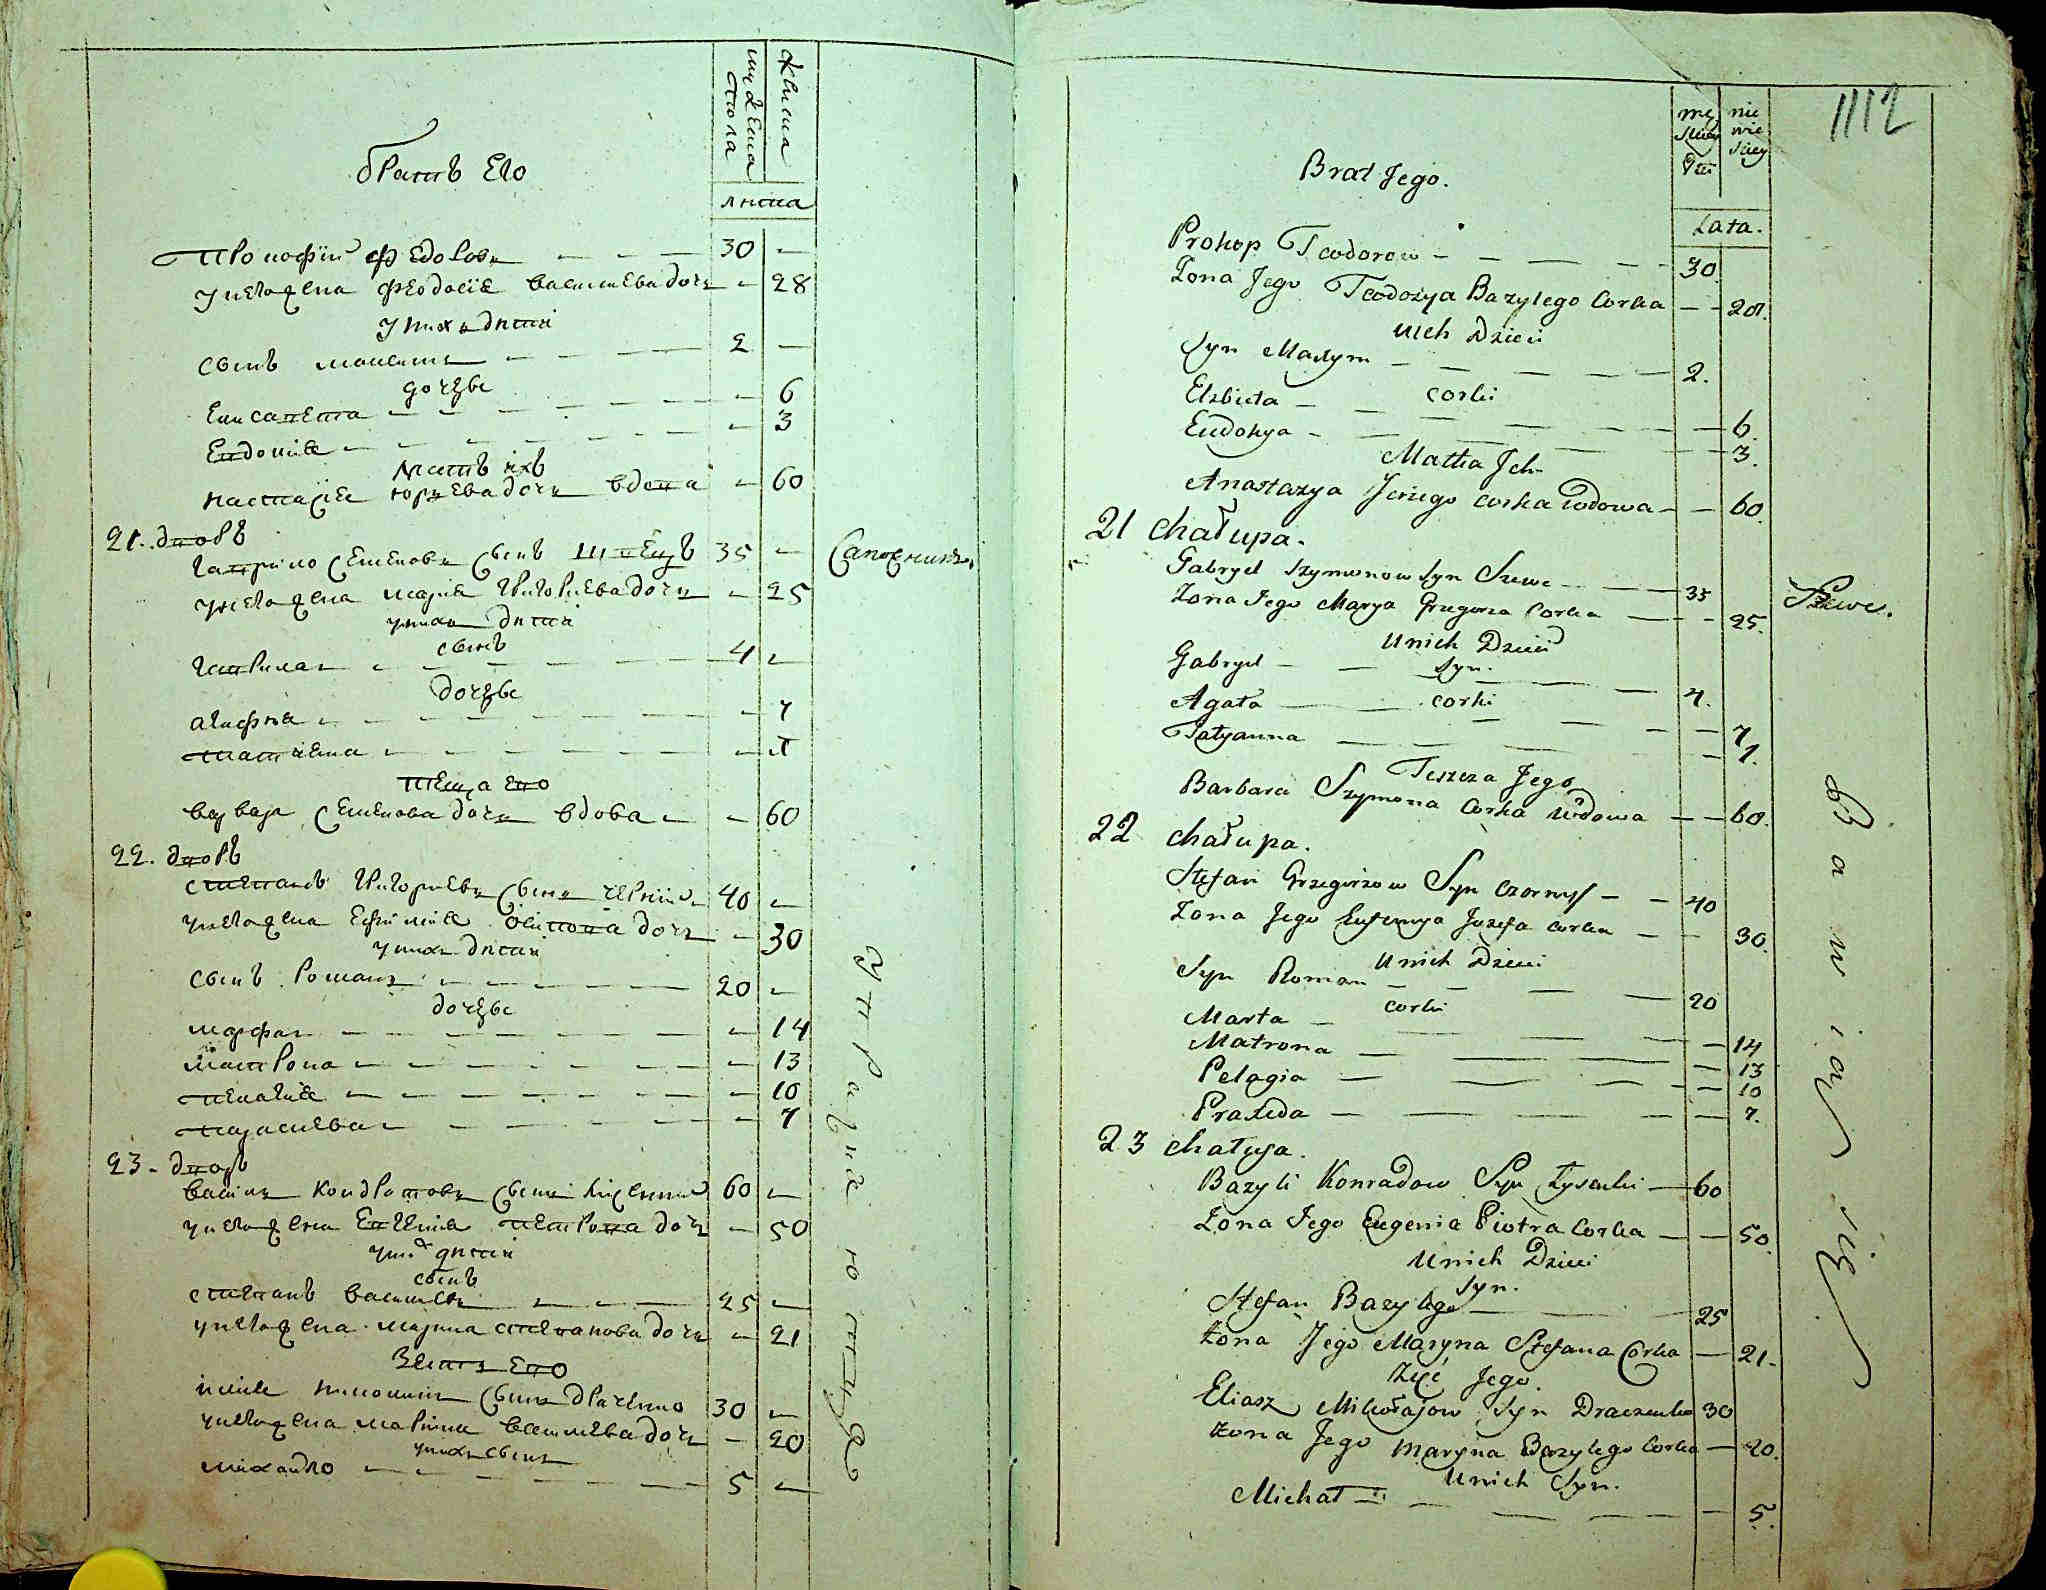 мужеска пола
женска
лѣта
братъ Его
Прокофій Федоровъ — — — 30 —
у него жена Феодосіе василиева дочь — 28
у них дѣтей
сынъ максимъ — — — 2 —
дочеры
Елисавета — — — 6
Евдокіе — — — 3
мать ихъ
настасіе юрьева дочь вдова — 60
21. дворъ
гаврило семеновъ сынъ швецъ 35 — Сапожникъ.
у него жена марие григориева дочь — 25
у нихъ дѣтей
сынъ
гаврила — — — 4 —
дочеры
агафия — — — 7
татиена — — — 1
теща его
варвара семенова дочь вдова — — 60
22. дворъ
степанъ григориевъ сынъ 40 —
у него жена Ефиміе осипова дочь — 30
у нихъ дѣтей
сынъ романъ — — — 20 —
дочеры
марфа — — — 14
матрона — — — 13
пелагие — — — 10
парасиева — — — 7
23. дворъ
василь кондратовъ сынъ 60 —
у него жена Евгение петрова дочь — 50
у них дѣтей
сынъ
степанъ василиевъ — — — 25 —
у него жена марина степанова дочь — 21
Зять его
илие николаевъ сынъ драченко 30 —
у него жена марина василиева дочь — 20
у нихъ сынъ
михайло — — — 5 —
1112
męskiey płci
niewieskiey
Lata.
Brat Jego.
Prokop Teodorow — — — 30
Zona Jego Teodozya Bazylego Corka — — 28.
u ich Dzieci
Syn Maxym — — — 2.
corki
Elzbieta — — — 6.
Eudokya — — — 3.
Matka Ich
Anastazya Jerzego corka wdowa — — 60.
21 chałupa.
Gabryel Szymonow Syn Szewc — — 35 Szewc.
Zona Jego Marya Grzegorza Corka — — 25.
U nich Dzieci
Syn.
Gabryel — — — 4.
corki
Agata — — — 7
Tatyanna — — — 1.
Teszcza Jego
Barbara Szymona Corka wdowa — — 60.
22 chałupa.
Stefan Grzegorzow Syn Czornyj — — 40
Zona Jego Eufemya Jozefa corka — — 30.
U nich Dzieci
Syn Roman — — — 20
corki
Marta — — — 14
Matrona — — — 13
Pelagia — — — 10
Praxeda — — — 7.
23 chałupa.
Bazyli Konradow Syn Łysenki — 60
Zona Jego Eugenia Piotra Corka — — 50.
U nich Dzieci
Syn.
Stefan Bazylego — — 25
Zona Jego Maryna Stefana Corka — 21.
Zięć Jego.
Eliasz Mikołajow Syn Draczenko 30
Zona Jego Maryna Bazylego Corka — 20.
U nich Syn.
Michał — — — 5.
Bawią się